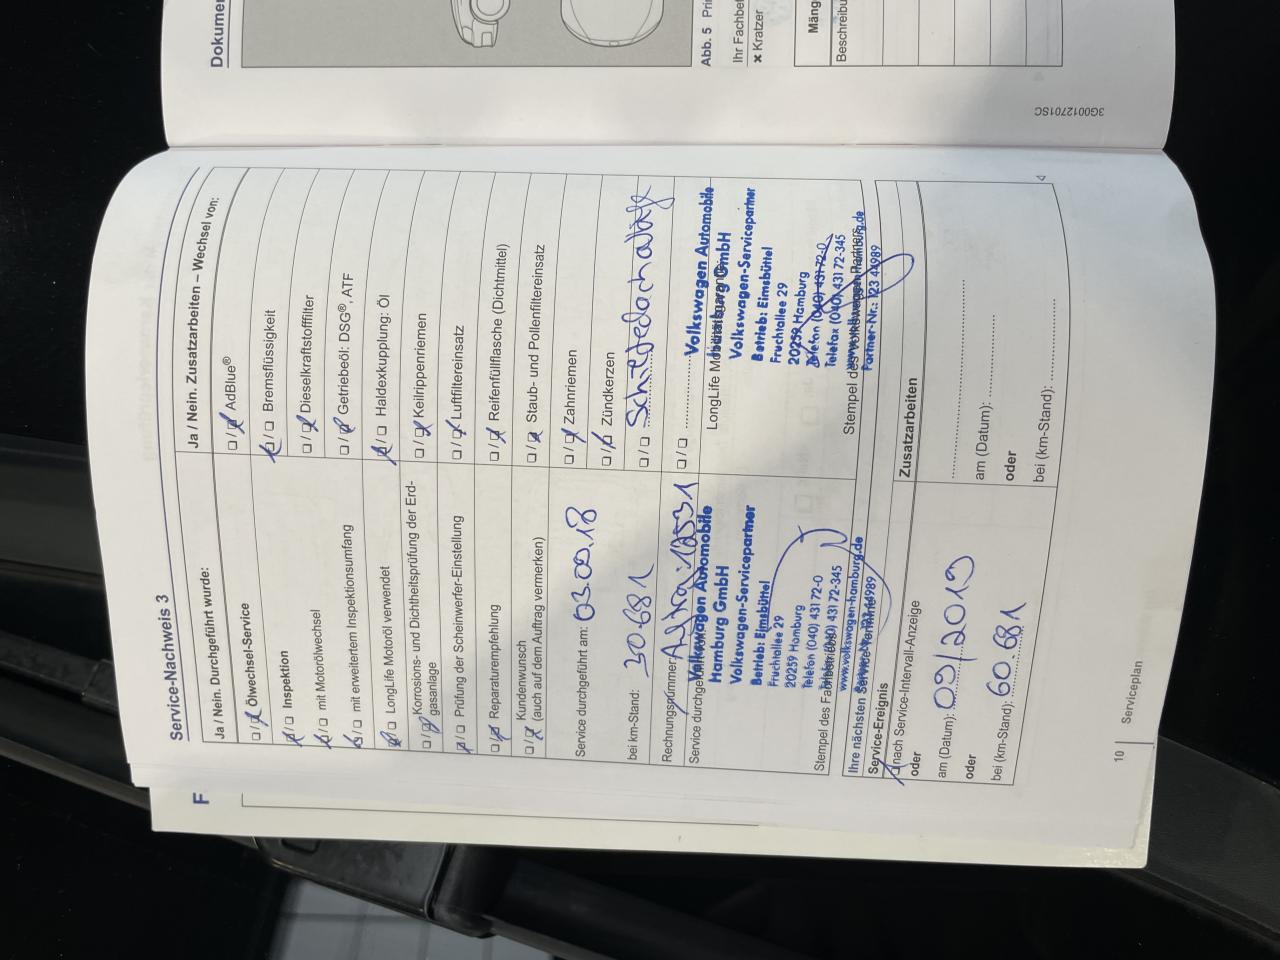 Dokumen
Abb. 5 Pri
Ihr Fachbet
× Kratzer
Mäng
Beschreibu
3G0012701SC
F
Service-Nachweis 3
Ja / Nein. Durchgeführt wurde:
Ölwechsel-Service
Inspektion
mit Motorölwechsel
mit erweitertem Inspektionsumfang
LongLife Motoröl verwendet
Korrosions- und Dichtheitsprüfung der Erd-
gasanlage
Prüfung der Scheinwerfer-Einstellung
Reparaturempfehlung
Kundenwunsch
(auch auf dem Auftrag vermerken)
Service durchgeführt am: 03.09.18
bei km-Stand: 30.681
Rechnungsnummer
Service durchge
Volkswagen Automobile
Hamburg GmbH
Volkswagen-Servicepartner
Betrieb: Eimsbüttel
Fruchtallee 29
20259 Hamburg
Telefon (040) 431 72-0
Telefax (040) 431 72-345
www.volkswagen-hamburg.de
Stempel des
Ja / Nein. Zusatzarbeiten – Wechsel von:
AdBlue®
Bremsflüssigkeit
Dieselkraftstofffilter
Getriebeöl: DSG®, ATF
Haldexkupplung: Öl
Keilrippenriemen
Luftfiltereinsatz
Reifenfüllflasche (Dichtmittel)
Staub- und Pollenfiltereinsatz
Zahnriemen
Zündkerzen
LongLife
Volkswagen Automobile
Hamburg GmbH
Volkswagen-Servicepartner
Betrieb: Eimsbüttel
Fruchtallee 29
20259 Hamburg
Telefon (040) 431 72-0
Telefax (040) 431 72-345
Partner-Nr.: 123 44989
Stempel des Volkswagen Partners
Ihre nächsten
Service-Ereignis
nach Service-Intervall-Anzeige
oder
am (Datum): 09/2019
oder
bei (km-Stand): 60.681
Zusatzarbeiten
am (Datum):
oder
bei (km-Stand):
10
Serviceplan